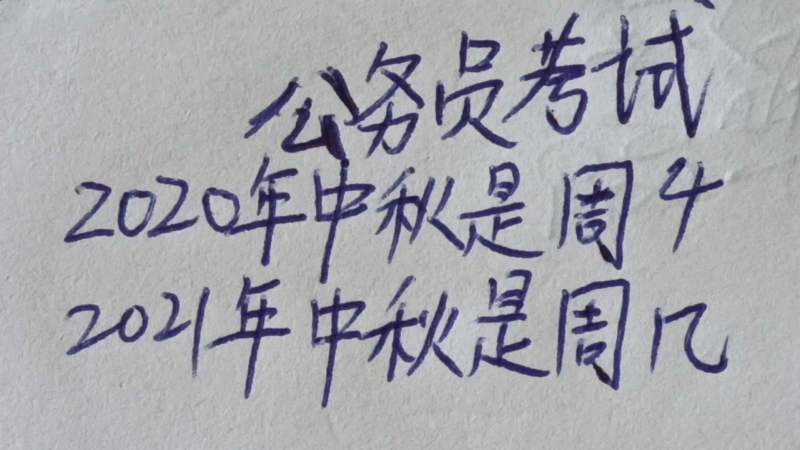 公务员考试
2020年中秋是周4
2021年中秋是周几